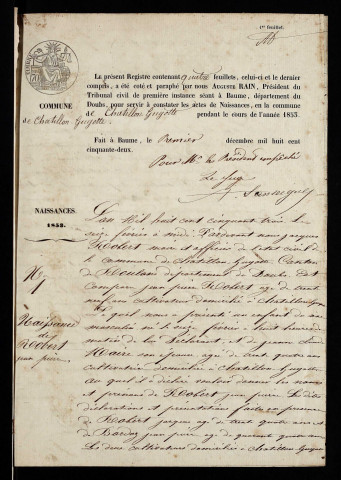 1er feuillet.
La présent Registre contenant quatre feuillets, celui-ci et le dernier
compris, a été coté et paraphé par nous AUGUSTE RAIN, Président du
Tribunal civil de première instance séant à Baume, département du
Doubs, pour servir à constater les actes de Naissances, en la commune
de Chatillon Guyotte pendant le cours de l'année 1853.
COMMUNE
de Chatillon Guyotte
Fait à Baume, le Premier décembre mil huit cent
cinquante-deux.
Pour Mr le Président empêché
Le Juge
NAISSANCES.
1853.
No 1
Naissance
de
Robert
jean pierre
L'an Mil huit cent cinquante trois le
seize février à midi Pardevant nous jacques
Robert maire et officier de l'état civil de
la commune de Chatillon Guyotte Canton
de Roulans département du Doubs Est
comparu jean pierre Robert agé de trente
neuf ans cultivateur domicilié à Chatillon Guyotte
lequel nous a présenté un enfant du sexe
masculin né le seize février à huit heures du
matin de lui Déclarant et de jeanne
Maire son épouse agée de trente quatre ans
cultivatrice domiciliée à Chatillon Guyotte
au quel il a déclaré vouloir donner les noms
et prénoms de Robert jean pierre Les dites
déclarations et présentation faites en présence
de Robert jacques agé de trente quatre ans et
de jean pierre agé de quarante quatre ans
Les deux cultivateurs domiciliés à Chatillon Guyotte